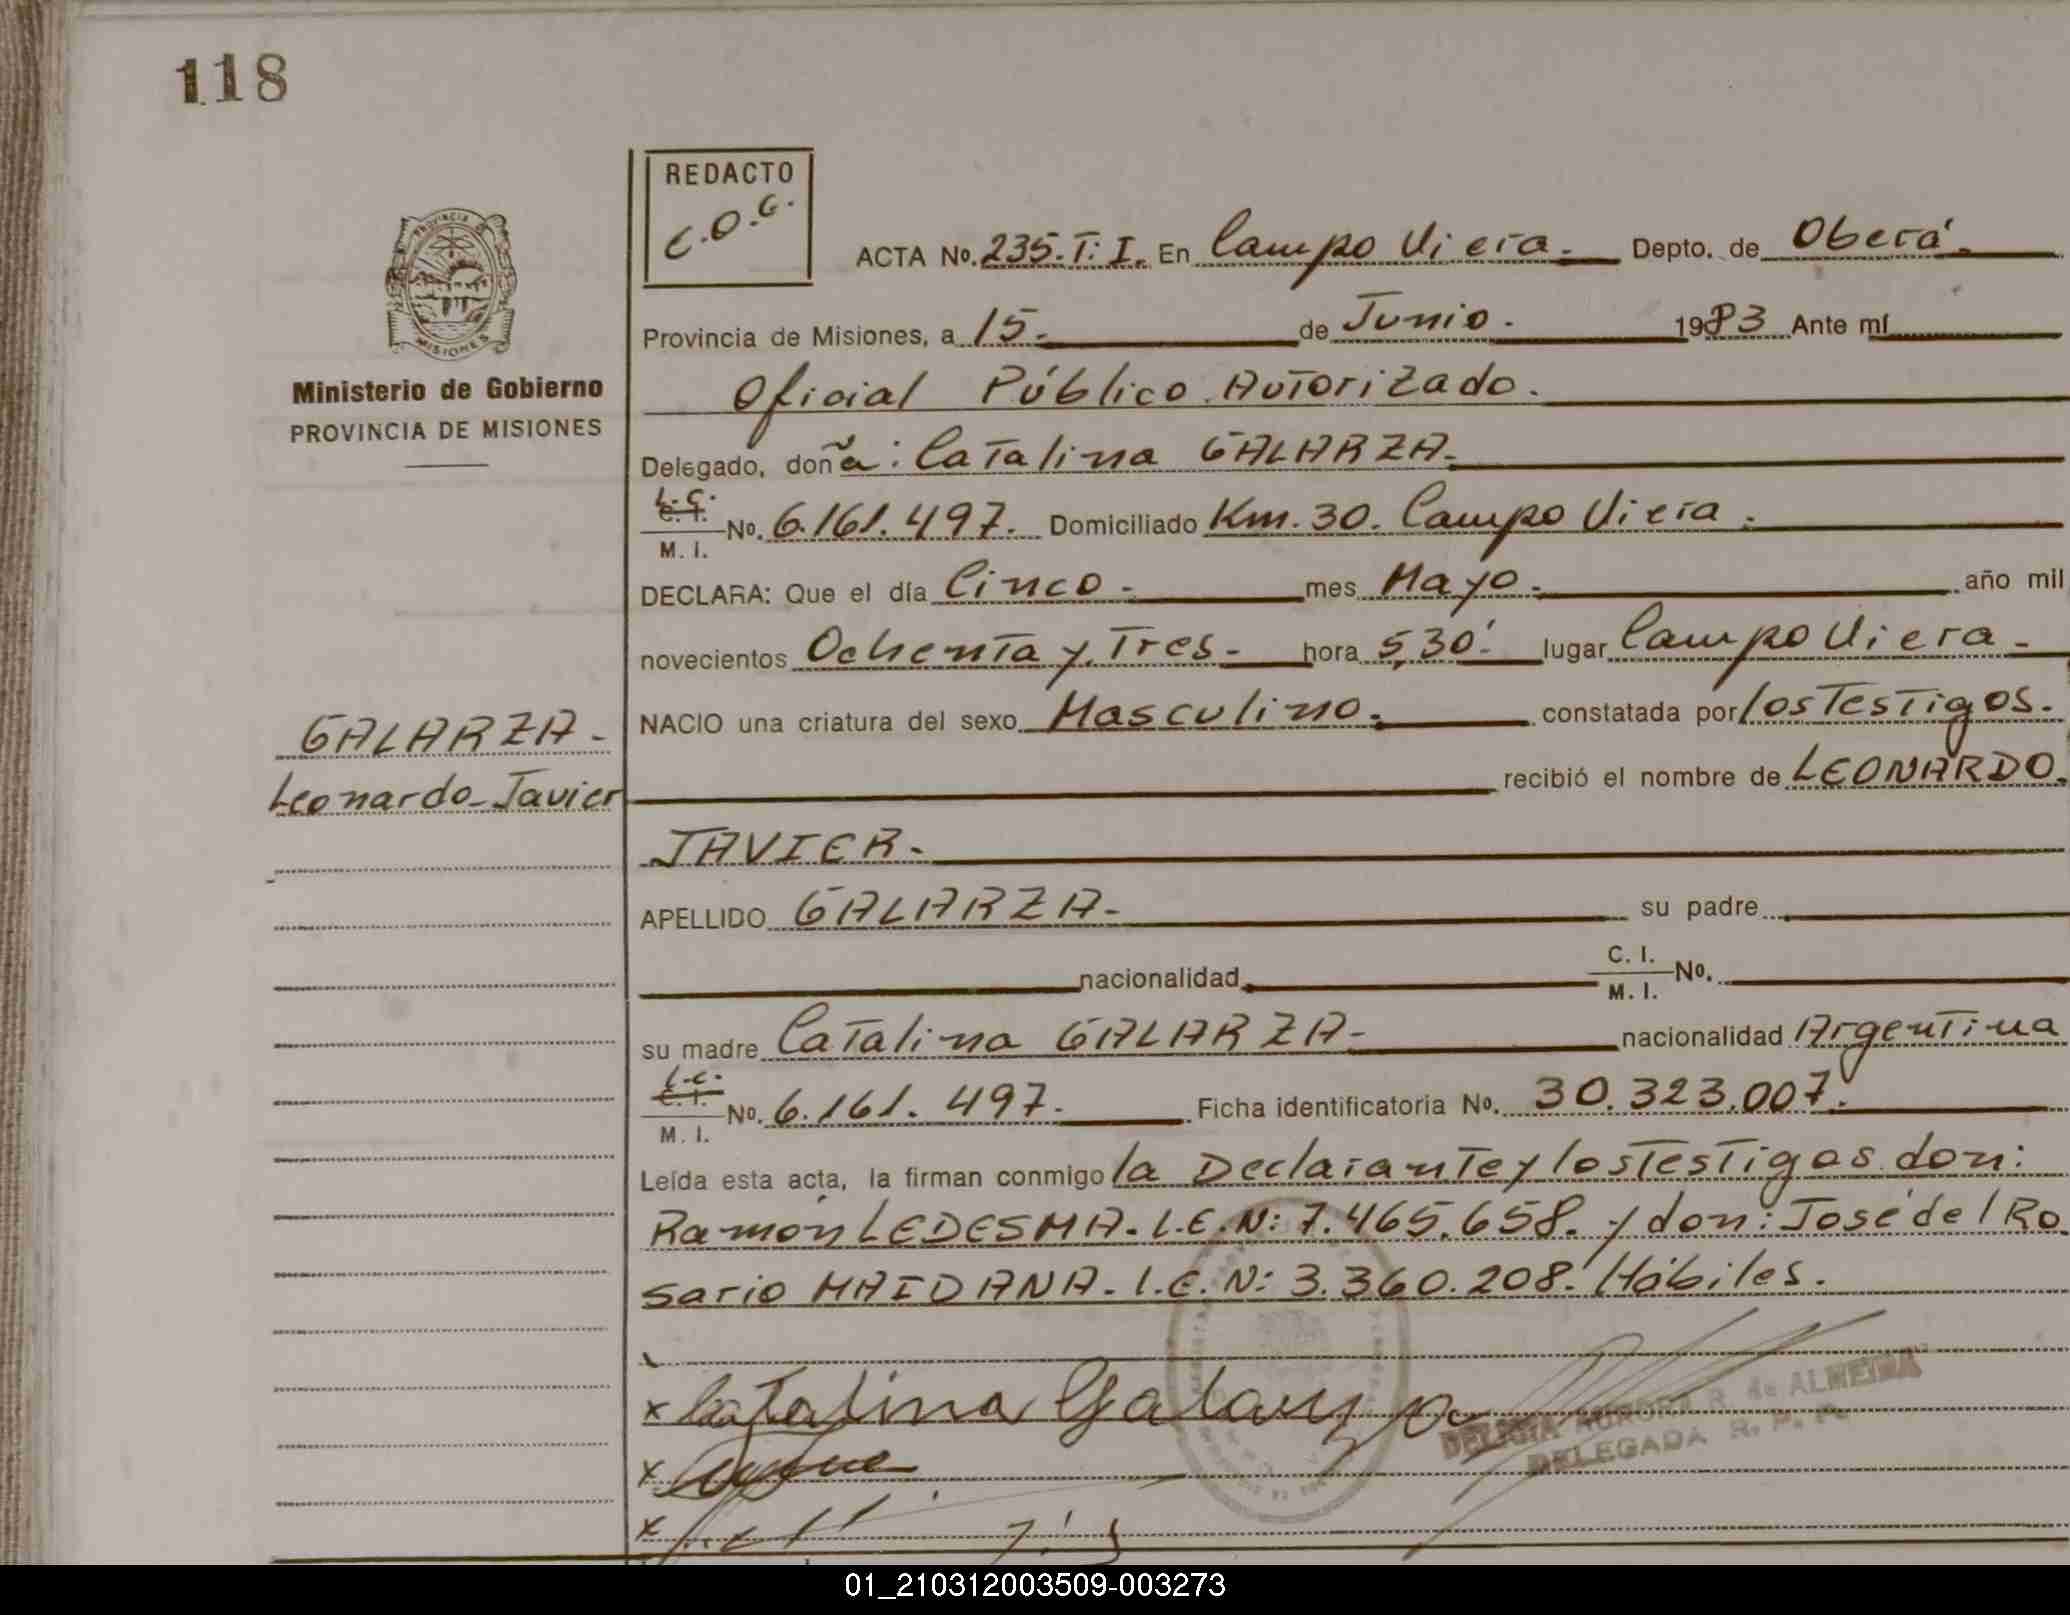 118
REDACTO
C.O.G.
ACTA No. 235. T: I. En Campo Viera.- Depto. de Oberá.-
Provincia de Misiones, a 15.- de Junio.- 1983 Ante mí
Oficial Público Autorizado.
Delegado, doña: Catalina GALARZA.-
L.C. C. I. M. I. No. 6.161.497. Domiciliado Km. 30. Campo Viera.
DECLARA: Que el día Cinco.- mes Mayo.- año mil
novecientos Ochenta y Tres.- hora 5,30'.- lugar Campo Viera.-
NACIO una criatura del sexo Masculino.- constatada por los Testigos.-
recibió el nombre de LEONARDO.
JAVIER.-
APELLIDO GALARZA.- su padre
nacionalidad C. I. M. I. No.
su madre Catalina GALARZA.- nacionalidad Argentina
L.C. C. I. M. I. No. 6.161.497.- Ficha identificatoria No. 30.323.007.-
Leída esta acta, la firman conmigo la Declarante y los Testigos don:
Ramón LEDESMA.- L.E.N: 7.465.658. y don: José del Ro
sario MAIDANA.- L.E.N: 3.360.208. Hábiles.
x Catalina Galarza
x
x
DELICIA AURORA R. de ALMEIDA
DELEGADA R. P. P.
PROVINCIA
MISIONES
Ministerio de Gobierno
PROVINCIA DE MISIONES
GALARZA.-
Leonardo Javier
01_210312003509-003273